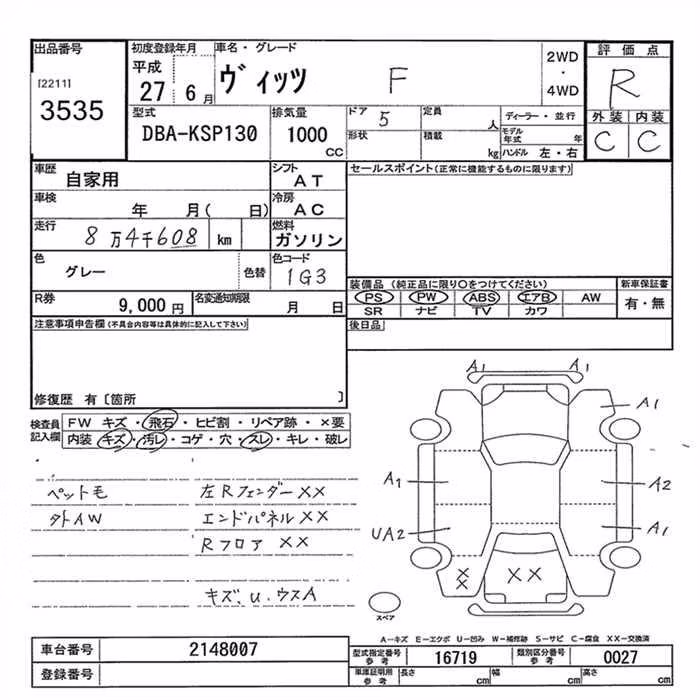 出品番号
[2211]
3535
初度登録年月
平成
27 6月
車名・グレード
ヴィッツ F
2WD
・
4WD
評価点
R
外装 内装
C C
型式
DBA-KSP130
排気量
1000
CC
ドア 5
形状
定員
人
積載
kg
ディーラー・並行
モデル年式 年
ハンドル 左・右
車歴
自家用
シフト
AT
車検
年 月( 日)
冷房
AC
走行
8万4千608 km
燃料
ガソリン
色
グレー
色替
色コード
1G3
R券
9,000円
名変通知期限
月 日
セールスポイント(正常に機能するものに限ります)
装備品 (純正品に限り○をつけてください)
PS PW ABS エアB AW
SR ナビ TV カワ
新車保証書
有・無
後日品
注意事項申告欄(不具合内容等は具体的に記入して下さい)
修復歴 有〔箇所 〕
検査員記入欄
FW キズ・飛石・ヒビ割・リペア跡・×要
内装 キズ・汚レ・コゲ・穴・スレ・キレ・破レ
ペット毛
外AW
左Rフェンダー××
エンドパネル××
Rフロア ××
キズ、U、ウスA
A1 A1
A1
A1
A2
UA2
A1
×
×
××
スペア
A-キズ E-エクボ U-凹み W-補修跡 S-サビ C-腐食 XX-交換済
車台番号
2148007
登録番号
型式指定番号
参考
16719
類別区分番号
参考
0027
車庫証明用
参考
長さ cm
幅 cm
高さ cm